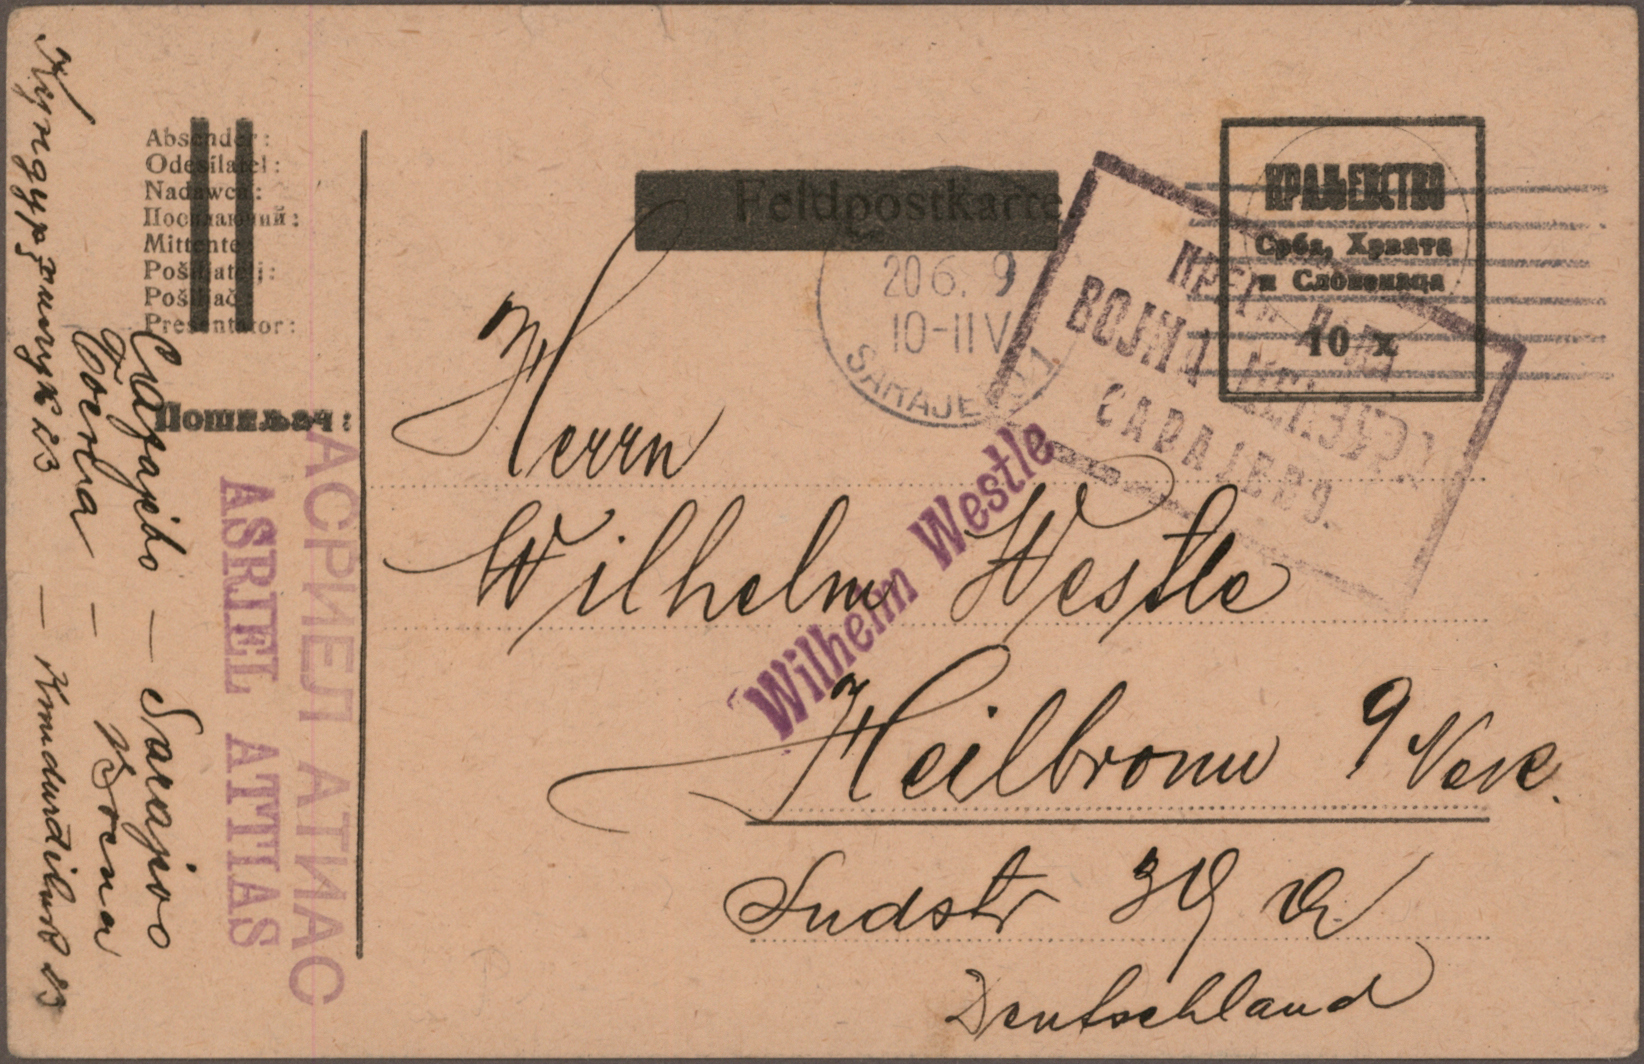 Absender:
Odesílatel:
Nadawca:
Посилаючий:
Mittente:
Pošiljatelj:
Pošiljač:
Presentator:
Пошиљач:
Feldpostkarte
КРАЉЕВСТВО
Срба, Хрвата
и Словенаца
10 х
20 6. 9
10-11 V
SARAJEVO 1
ВОЈНА ЦЕНЗУРА
САРАЈЕВО.
Herrn
Wilhelm Westle
Wilhelm Westle
Heilbronn 9 Neck.
Südstr 39
Deutschland
АСРИЕЛ АТИАС
ASRIEL ATTIAS
Сарајево — Sarajevo
Босна — Bosna
23